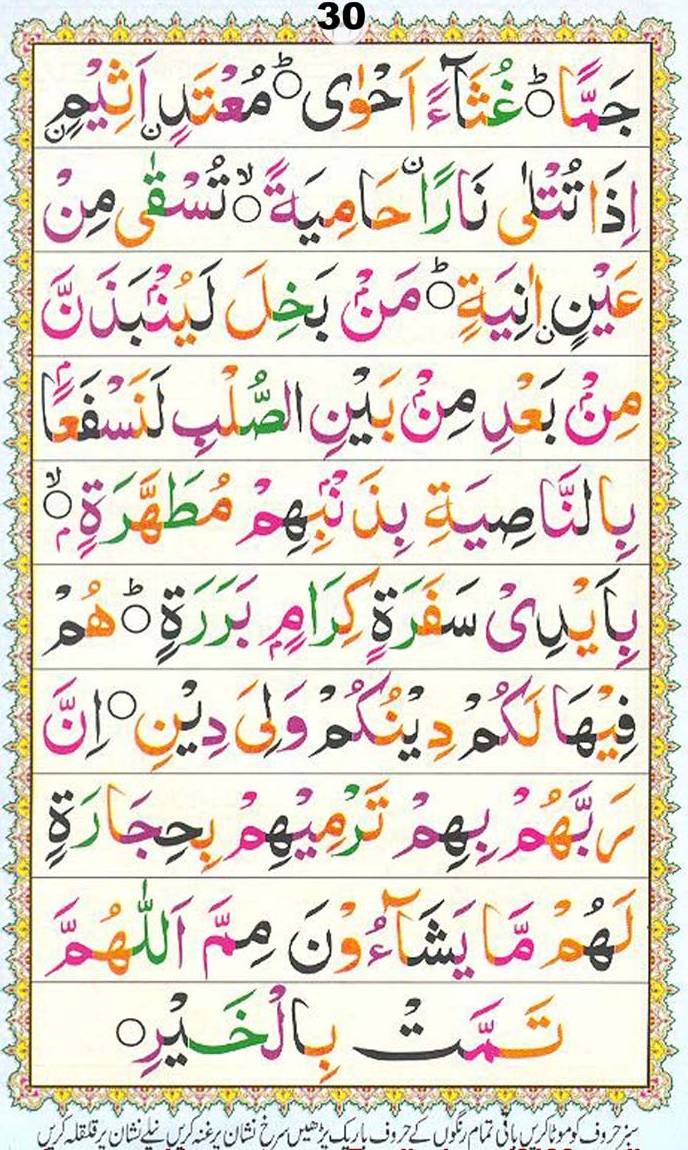 30
جَمًّا ○ؕ غُثَآءً اَحْوٰی ○ؕ مُعْتَدٍ اَثِيْمٍ
اِذَا تُتْلٰی نَارًا حَامِيَةً ○ۙ تُسْقٰی مِنْ
عَيْنٍ اٰنِيَةٍ ○ؕ مَنْۢ بَخِلَ لَيُنْۢبَذَنَّ
مِنْۢ بَعْدِ مِنْۢ بَيْنِ الصُّلْبِ لَنَسْفَعًۢا
بِالنَّاصِيَةِ بِذَنْۢبِهِمْ مُطَهَّرَةٍۭ ○ۙ
بِاَيْدِیْ سَفَرَةٍ كِرَامٍۭ بَرَرَةٍ ○ؕ هُمْ
فِيْهَا لَكُمْ دِيْنُكُمْ وَلِیَ دِيْنِ ○ اِنَّ
رَبَّهُمْ بِهِمْ تَرْمِيْهِمْ بِحِجَارَةٍ
لَهُمْ مَّا يَشَآءُوْنَ مِمَّ اَللّٰهُمَّ
تَمَّتْ بِالْخَيْرِ ○
سبز حروف کو موٹا کریں باقی تمام رنگوں کے حروف باریک پڑھیں سرخ نشان پر غنہ کریں نیلے نشان پر قلقلہ کریں